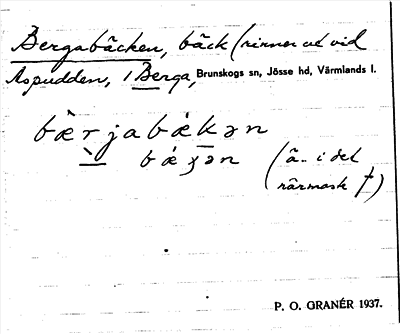 Bergabäcken, bäck (rinner ut vid
Aspudden, i Berga, Brunskogs sn, Jösse hd, Värmlands l.
bæ̀rjabækən
bǽʒən (ä. i det
närmask †)
P. O. GRANÉR 1937.